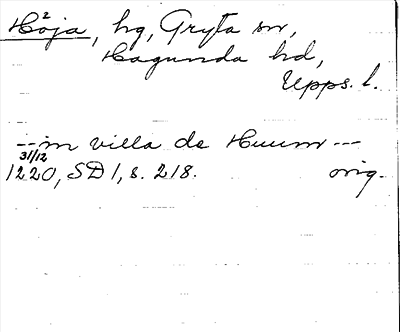 Höja², hg, Gryta sn,
Hagunda hd,
Upps. l.
--- in villa de Huum ---
31/12
1220, SD 1, s. 218. orig.